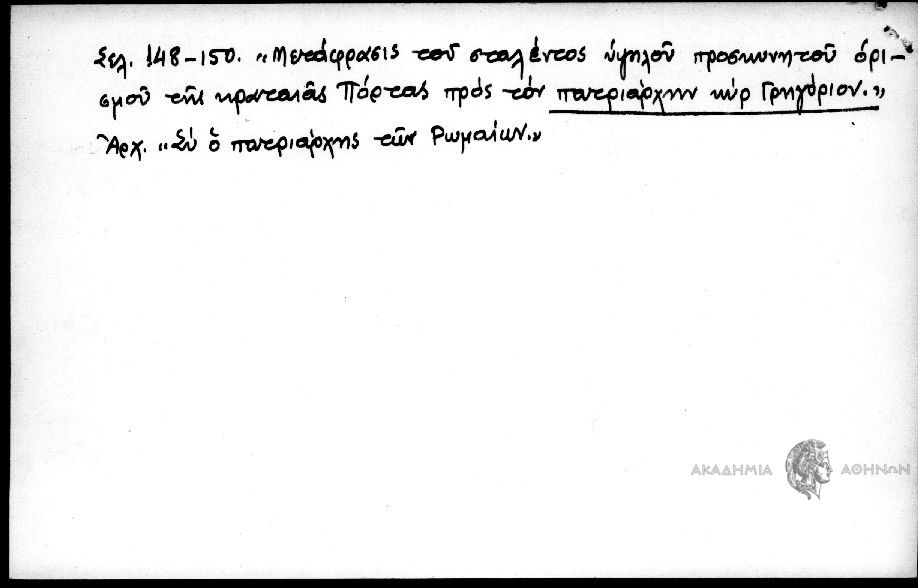 Σελ. 148-150. «Μετάφρασις τοῦ σταλέντος ὑψηλοῦ προσκυνητοῦ ὁρι-
σμοῦ τῆς κραταιᾶς Πόρτας πρὸς τὸν πατριάρχην κὺρ Γρηγόριον.»
Ἀρχ. «Σὺ ὁ πατριάρχης τῶν Ρωμαίων.»
ΑΚΑΔΗΜΙΑ ΑΘΗΝΩΝ